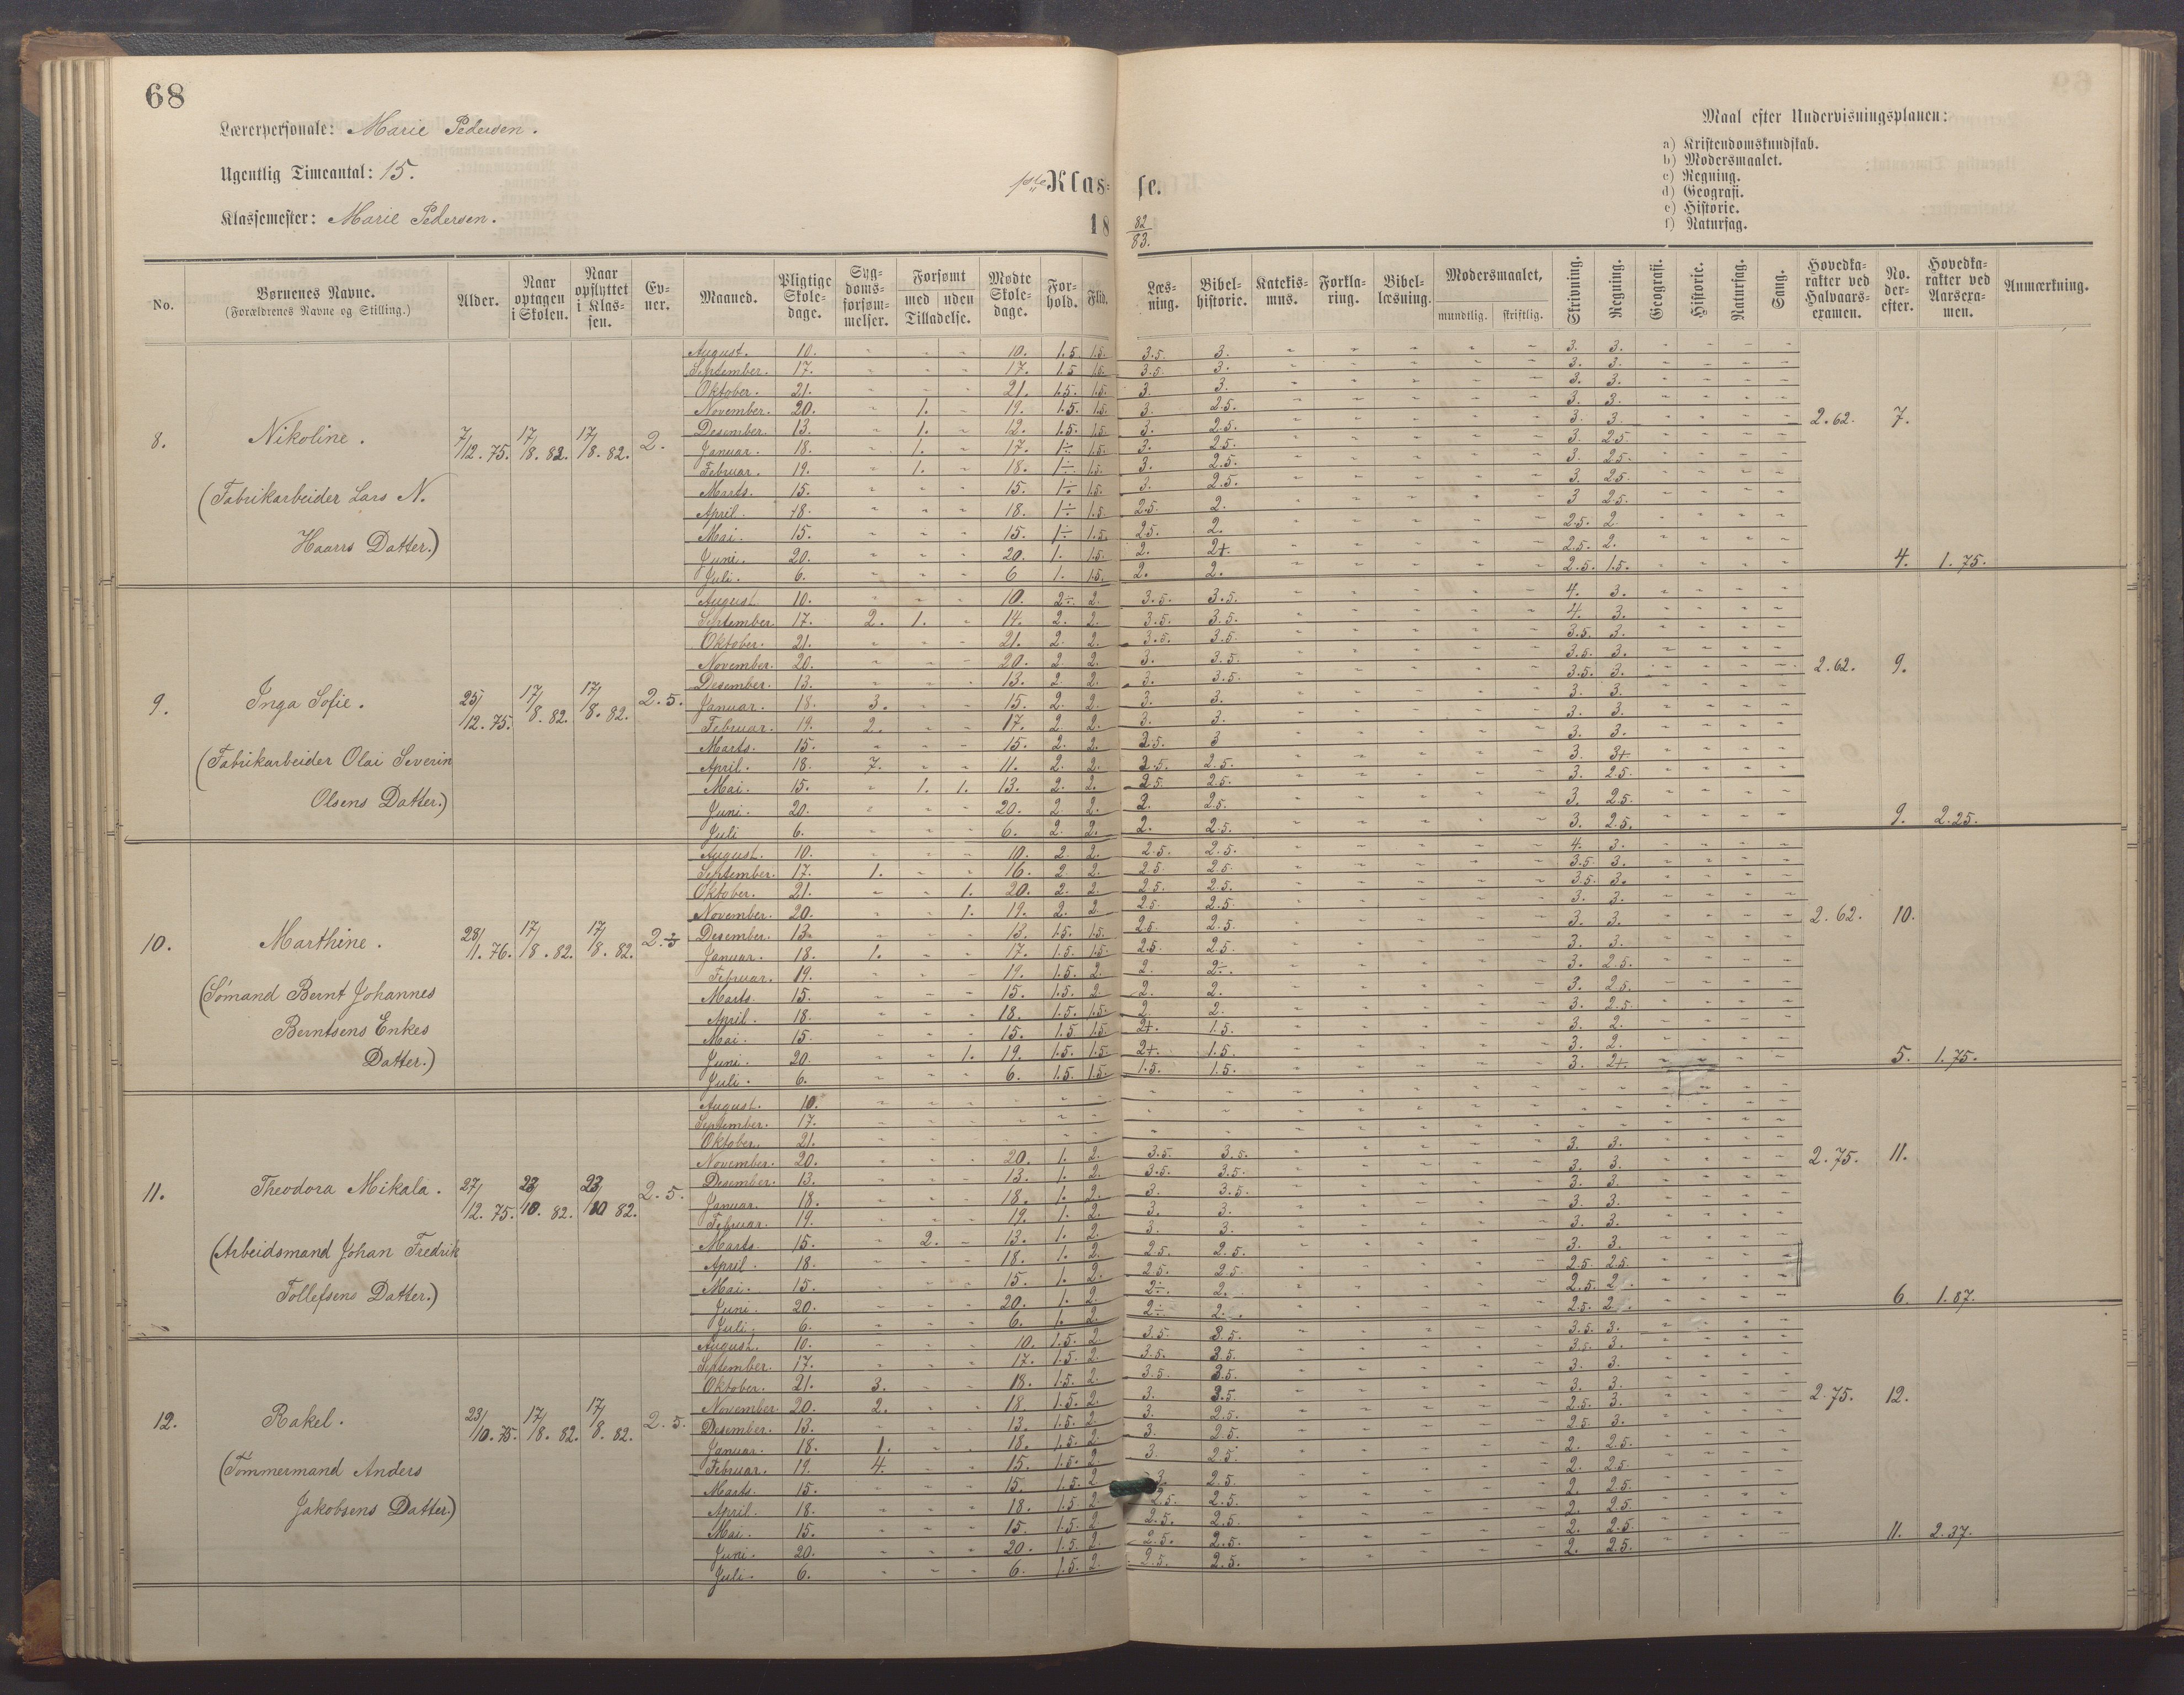 68
Lærerpersonale: Marie Pedersen.
Ugentlig Timeantal: 15.
Klassemester: Marie Pedersen.
1ste Klasse.
18 82/83.
Maal efter Undervisningsplanen:
a) Kristendomskundskab.
b) Modersmaalet.
c) Regning.
d) Geografi.
e) Historie.
f) Naturfag.
No. | Børnenes Navne. (Forældrenes Navne og Stilling.) | Alder. | Naar optagen i Skolen. | Naar opflyttet i Klassen. | Evner. | Maaned. | Pligtige Skoledage. | Sygdomsforsømmelser. | Forsømt med uden Tilladelse. | Mødte Skoledage. | Forhold. | Flid. | Læsning. | Bibelhistorie. | Katekismus. | Forklaring. | Bibellæsning. | Modersmaalet, mundtlig. skriftlig. | Skrivning. | Regning. | Geografi. | Historie. | Naturfag. | Sang. | Hovedkarakter ved Halvaarsexamen. | No. derefter. | Hovedkarakter ved Aarsexamen. | Anmærkning.
8. Nikoline. 7/12. 75. 17/8. 82. 17/8. 82. 2. 2.62. 7.
(Fabrikarbeider Lars N.
Haarrs Datter.)
August. 10. - - - 10. 1.5. 1.5. 3.5. 3. 3. 3.
September. 17. - - - 17. 1.5 1.5. 3.5. 3. 3. 3.
Oktober. 21. - - - 21. 1.5. 1.5. 3. 3. 3. 3.
November. 20. - 1. - 19. 1.5. 1.5. 3. 2.5. 3. 3.
Desember. 13. - 1. - 12. 1.5. 1.5. 3. 2.5. 3. 3.
Januar. 18. - 1. - 17. 1÷ 1.5. 3. 2.5. 3. 2.5.
Februar. 19. - 1. - 18. 1÷ 1.5. 3. 2.5. 3. 2.5.
Marts. 15. - - - 15. 1÷ 1.5. 3. 2.5. 3. 2.5.
April. 18. - - - 18. 1÷ 1.5. 2.5. 2. 3 2.5.
Mai. 15. - - - 15. 1÷ 1.5. 2.5. 2. 2.5. 2.
Juni. 20. - - - 20. 1. 1.5. 2. 2+. 2.5. 2.
Juli. 6. - - - 6 1. 1.5. 2. 2. 2.5. 1.5. 4. 1.75.
9. Inga Sofie. 25/12. 75. 17/8. 82. 17/8. 82. 2.5. 2.62. 9.
(Fabrikarbeider Olai Severin
Olsens Datter.)
August. 10. - - - 10. 2÷. 2. 3.5. 3.5. 4. 3.
September. 17. 2. 1. - 14. 2. 2. 3.5. 3.5. 4. 3.
Oktober. 21. - - - 21. 2. 2. 3.5. 3.5. 3.5. 3.
November. 20. - - - 20. 2. 2. 3. 3.5. 3.5. 3.
Desember. 13. - - - 13. 2. 2. 3. 3.5. 3.5. 3.
Januar. 18. 3. - - 15. 2. 2. 3. 3. 3. 3.
Februar. 19. 2. - - 17. 2. 2. 3. 3. 3. 3.
Marts. 15. - - - 15. 2. 2. 2.5. 3 3. 3.
April. 18. 7. - - 11. 2. 2. 2.5. 2.5. 3 3+
Mai. 15. - 1. 1. 13. 2. 2. 2.5 2.5. 3. 2.5.
Juni. 20. - - - 20. 2. 2. 2. 2.5. 3. 2.5.
Juli 6. - - - 6. 2. 2. 2. 2.5. 3. 2.5. 9. 2.25.
10. Marthine. 28/1. 76. 17/8. 82. 17/8. 82. 2.62. 10.
(Sømand Bernt Johannes
Berntsens Enkes
Datter.)
August. 10. - - - 10. 2. 2. 2.5. 2.5. 4. 3.
September. 17. 1. - - 16. 2. 2. 2.5 2.5. 3.5. 3.
Oktober. 21. - - 1. 20. 2. 2. 2.5. 2.5. 3.5. 3.
November. 20. - - 1. 19. 2. 2 2.5. 2.5. 3. 3.
Desember. 13. - - - 13. 1.5. 1.5. 2.5. 2.5. 3. 3.
Januar. 18. 1. - - 17. 1.5. 1.5. 2.5. 2.5. 3. 3.
Februar. 19. - - - 19. 1.5. 2. 2. 2÷. 3. 2.5.
Marts. 15. - - - 15. 1.5. 2. 2. 2. 3. 2.5.
April. 18. - - - 18. 1.5. 1.5. 2. 2. 3. 2.5.
Mai. 15. - - - 15. 1.5 1.5. 2+. 1.5. 3. 2.
Juni. 20. - - 1. 19. 1.5. 1.5. 2+. 1.5. 3. 2.
Juli. 6. - - - 6. 1.5. 1.5. 1.5. 1.5. 3. 2+. 5. 1.75.
11. Theodora Mikala. 27/12. 75. 23/10. 82. 23/10 82. 2.5. 2.75. 11.
(Arbeidsmand Johan Fredrik
Tollefsens Datter.)
August. 10. - - - - - -
September. 17. - - - - - -
Oktober. 21. - - - - - -
November. 20. - - - 20. 1. 2. 3.5. 3.5. 3. 3.
Desember. 13. - - - 13. 1. 2. 3.5. 3.5. 3. 3.
Januar. 18. - - - 18. 1. 2. 3. 3.5. 3. 3.
Februar. 19. - - - 19. 1. 2. 3. 3. 3. 3.
Marts. 15. - 2. - 13. 1. 2. 3. 3. 3. 3.
April. 18. - - - 18. 1. 2. 2.5. 2.5. 3. 3.
Mai. 15. - - - 15. 1. 2. 2.5. 2.5. 2.5. 2.5.
Juni. 20. - - - 20. 1. 2. 2÷. 2. 2.5. 2.
Juli. 6. - - - 6. 1. 2. 2÷ 2. 2.5. 2. 6. 1.87.
12. Rakel. 23/10. 75. 17/8. 82. 17/8. 82. 2.5. 2.75. 12.
(Tømmermand Anders
Jakobsens Datter.)
August. 10. - - - 10. 1.5. 2. 3.5. 3.5. 3.5. 3.
September. 17. - - - 17. 1.5. 2. 3.5. 3.5. 3.5. 3.
Oktober. 21. 3. - - 18. 1.5. 2. 3.5. 3.5. 3. 3.
November. 20. 2. - - 18. 1.5. 2. 3. 3.5 3. 3.
Desember. 13. - - - 13. 1.5. 2. 3. 2.5. 2.5. 3.
Januar. 18. 1. - - 18. 1.5. 2. 3. 2.5. 2.5. 3.
Februar. 19. 4. - - 15. 1.5. 2 3. 2.5. 2. 2.5.
Marts. 15. - - - 15. 1.5. 2. 3. 2.5. 2. 2.5.
April. 18. - - - 18. 1.5. 2. 2.5. 2.5. 2. 2.5.
Mai. 15. - - - 15. 1.5. 2 2.5. 2.5. 2. 2.5
Juni. 20. - - - 20. 1.5. 2. 2.5. 2.5. 2. 2.5.
Juli. 6. - - - 6. 1.5. 2. 2.5. 2.5. 2. 2.5. 11. 2.37.